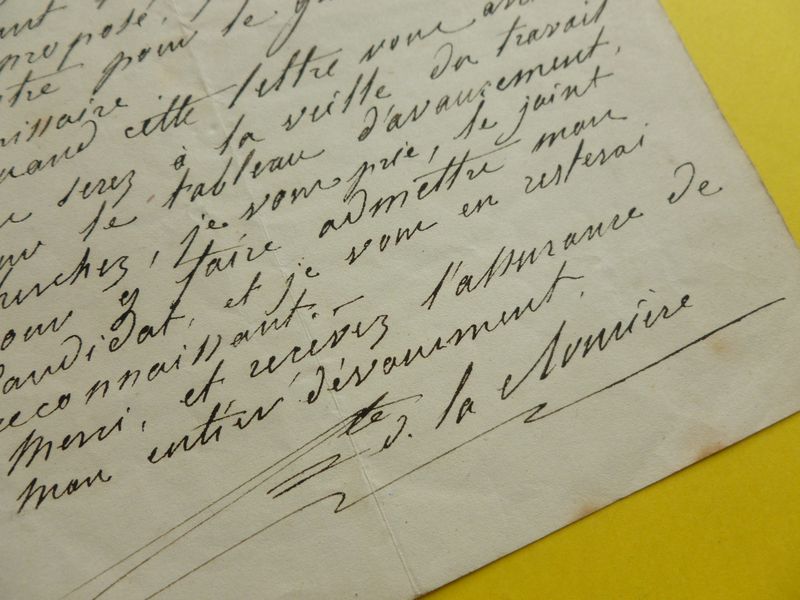 proposé,
pour le
cette lettre vous
serez à la veille du travail
le tableau d'avancement,
cherchez, je vous prie, le joint
pour y faire admettre mon
Candidat, et je vous en resterai
reconnaissant. —
Merci, et recevez l'assurance de
mon entier dévouement.
d. la